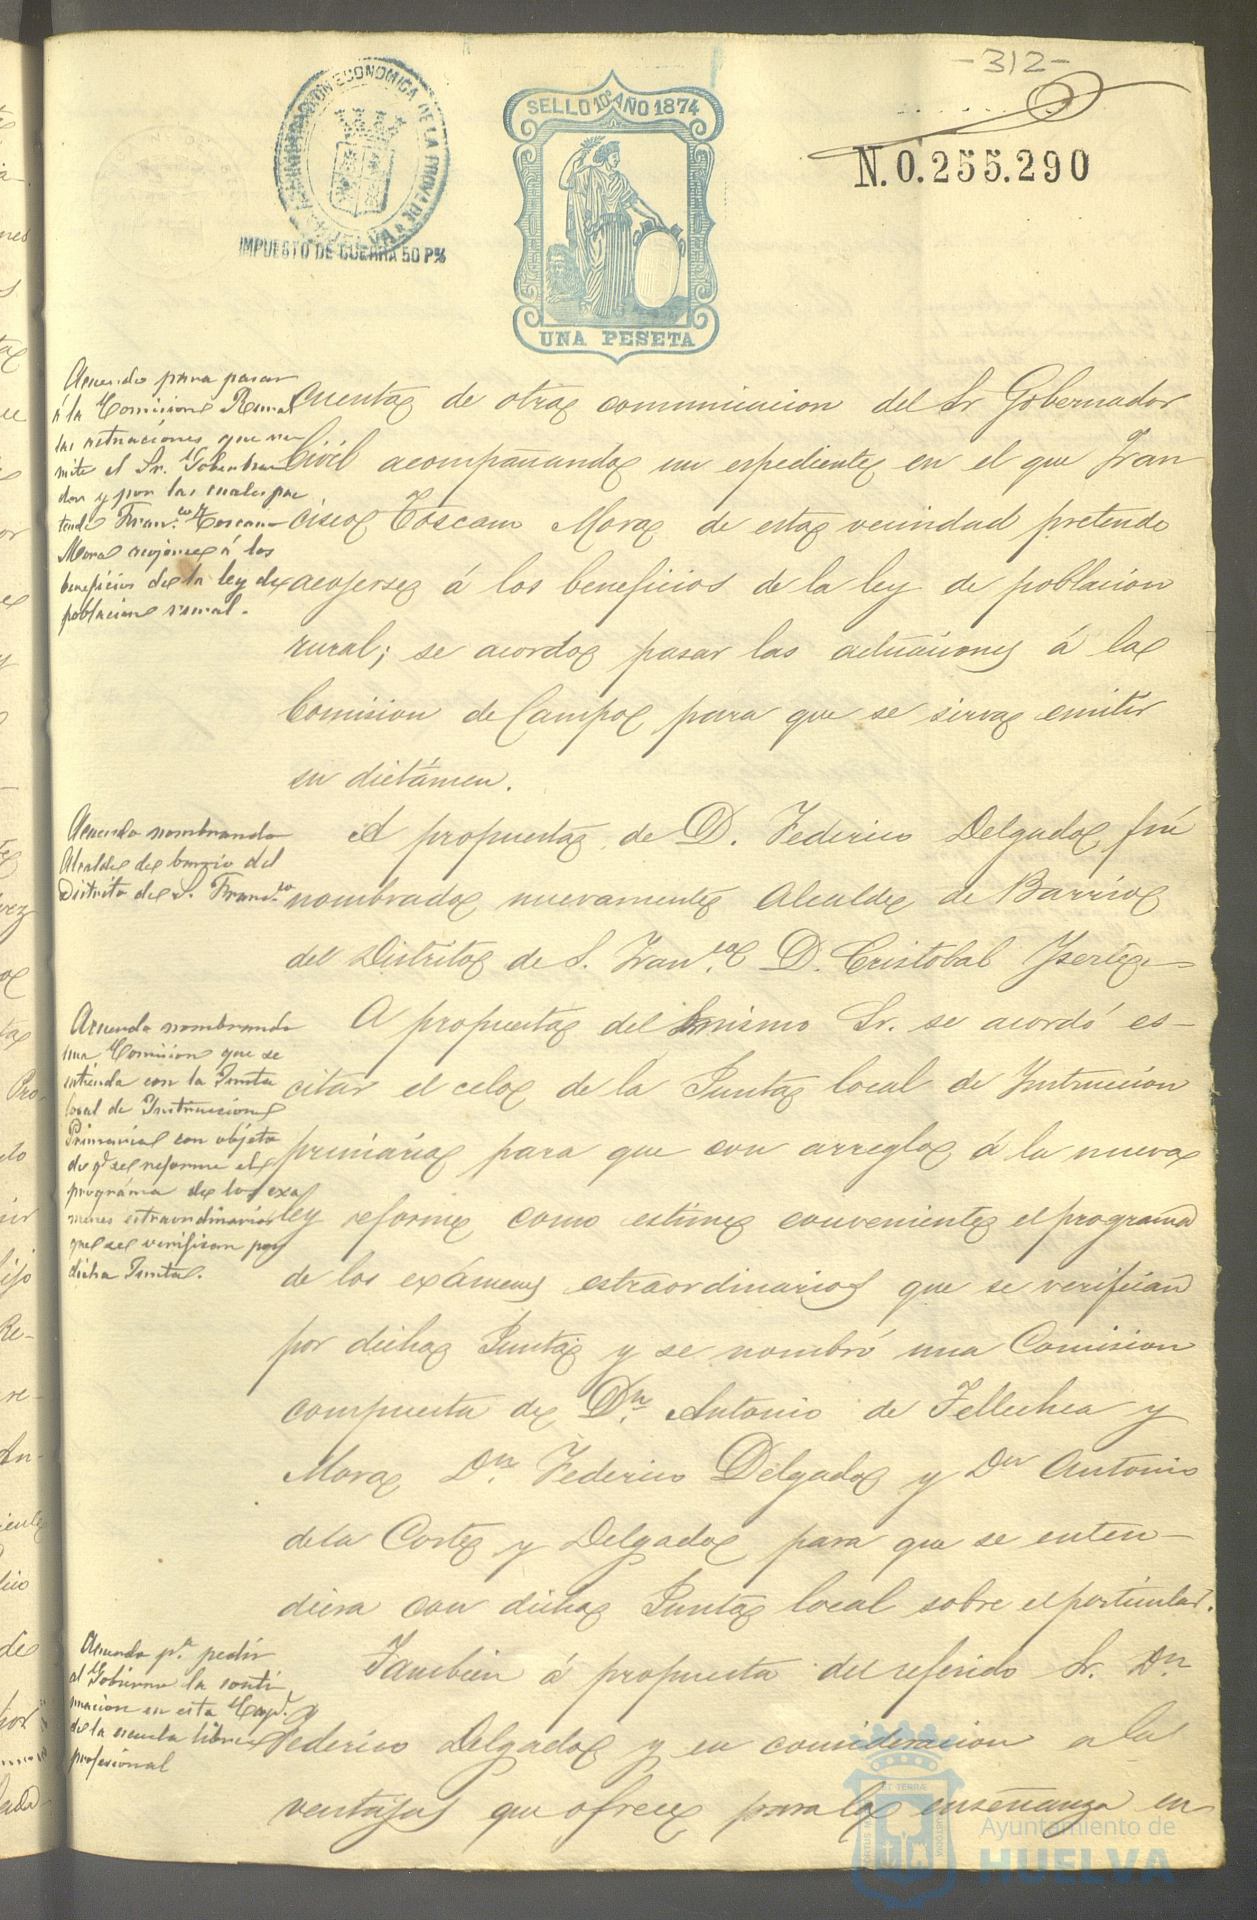 -312-
ADMINISTRACION ECONOMICA DE LA PROV.ª DE HUELVA
IMPUESTO DE GUERRA 50 P%
SELLO 10º AÑO 1874
UNA PESETA
N. 0.255.290
Acuerdo para pasar
á la Comision Rural
las actuaciones que re
mite el Sr. Goberna
dor y por las cuales pre
tende Fran.co Toscano
Mora acojerse á los
beneficios de la ley de
poblacion rural.
cuenta de otra comunicacion del Sr Gobernador
Civil acompañando un espediente en el que Fran
cisco Toscano Mora de esta vecindad pretende
acojerse á los beneficios de la ley de poblacion
rural; se acordo pasar las actuaciones á la
Comision de Campo para que se sirva emitir
su dictámen.
Acuerdo nombrando
Alcalde de barrio del
Distrito de S. Fran.co
A propuesta de D. Federico Delgado, fué
nombrado nuevamente Alcalde de Barrio
del Distrito de S. Fran.co D. Cristobal
Acuerdo nombrando
una Comision que se
entienda con la Junta
local de Instruccion
Primaria con objeto
de q.e se reforme el
prográma de los exa
menes estraordinarios
que se verifican por
dicha Junta.
A propuesta del mismo Sr. se acordó es-
citar el celo de la Junta local de Instruccion
primária para que con arreglo á la nueva
ley reforme como estime conveniente el programa
de los exámenes estraordinarios que se verifican
por dicha Junta y se nombró una Comision
compuesta de D.n Antonio de Tellechea y
Mora D.n Federico Delgado y Dn Antonio
de la Corte y Delgado para que se enten-
diera con dicha Junta local sobre el particular.
Acuerdo p.a pedir
al Gobierno la conti
nuacion en esta Cap.l
de la escuela libre
profesional
Tambien á propuesta del referido Sr. Dn
Federico Delgado y en consideracion a la
ventajas que ofrece para la enseñanza en
Ayuntamiento de
HUELVA